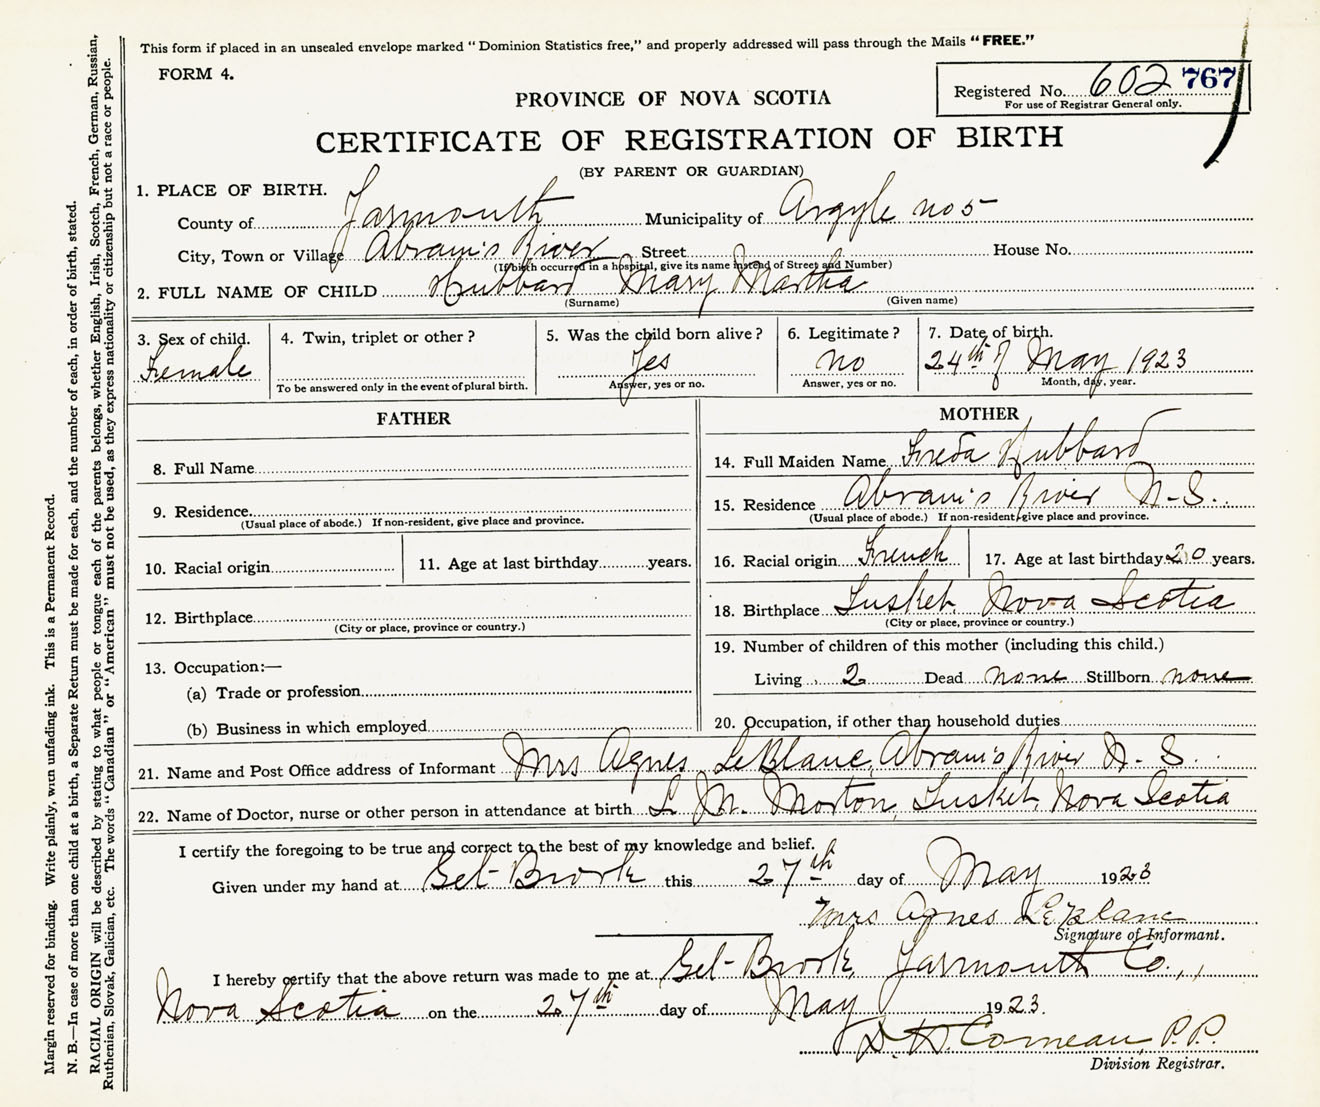 This form if placed in an unsealed envelope marked "Dominion Statistics free," and properly addressed will pass through the Mails "FREE."
FORM 4.
Registered No. 602 767
For use of Registrar General only.
PROVINCE OF NOVA SCOTIA
CERTIFICATE OF REGISTRATION OF BIRTH
(BY PARENT OR GUARDIAN)
1. PLACE OF BIRTH.
County of Yarmouth Municipality of Argyle no 5
City, Town or Village Abram's River Street House No.
(If birth occurred in a hospital, give its name instead of Street and Number)
2. FULL NAME OF CHILD Hubbard Mary Martha
(Surname) (Given name)
3. Sex of child. 4. Twin, triplet or other? 5. Was the child born alive? 6. Legitimate? 7. Date of birth.
Female Yes no 24th of May 1923
To be answered only in the event of plural birth. Answer, yes or no. Answer, yes or no. Month, day, year.
FATHER
8. Full Name
9. Residence
(Usual place of abode.) If non-resident, give place and province.
10. Racial origin 11. Age at last birthday years.
12. Birthplace
(City or place, province or country.)
13. Occupation:—
(a) Trade or profession
(b) Business in which employed
MOTHER
14. Full Maiden Name Freda Hubbard
15. Residence Abram's River N-S.
(Usual place of abode.) If non-resident, give place and province.
16. Racial origin French 17. Age at last birthday 20 years.
18. Birthplace Tusket Nova Scotia
(City or place, province or country.)
19. Number of children of this mother (including this child.)
Living 2 Dead none Stillborn none
20. Occupation, if other than household duties
21. Name and Post Office address of Informant Mrs Agnes LeBlanc, Abram's River N-S.
22. Name of Doctor, nurse or other person in attendance at birth L. M. Morton, Tusket, Nova Scotia
I certify the foregoing to be true and correct to the best of my knowledge and belief.
Given under my hand at Eel-Brook this 27th day of May 1923
Mrs Agnes LeBlanc
Signature of Informant.
I hereby certify that the above return was made to me at Eel-Brook, Yarmouth Co.,
Nova Scotia on the 27th day of May 1923.
D. H. Comeau, P.P.
Division Registrar.
Margin reserved for binding. Write plainly, with unfading ink. This is a Permanent Record.
N. B.—In case of more than one child at a birth, a Separate Return must be made for each, and the number of each, in order of birth, stated.
RACIAL ORIGIN will be described by stating to what people or tongue each of the parents belongs, whether English, Irish, Scotch, French, German, Russian,
Ruthenian, Slovak, Galician, etc. The words "Canadian" or "American" must not be used, as they express nationality or citizenship but not a race or people.